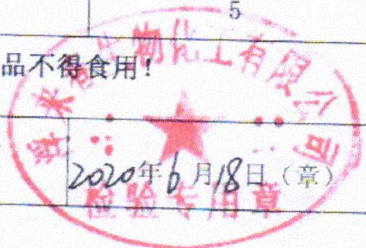 5
品不得食用！
生物化工有限公司
2020年6月18日（章）
检验专用章